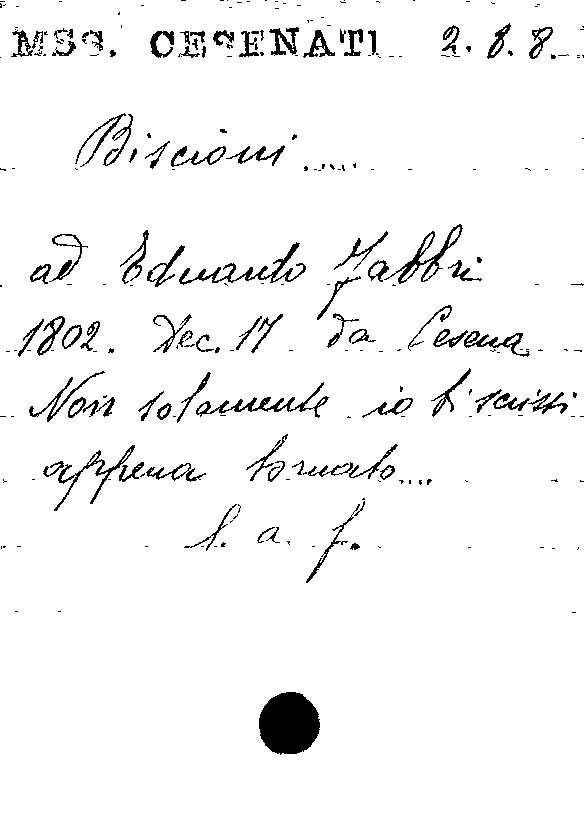 MSS. CESENATI 2.8.8.
Biscioni .....
ad Eduardo Fabbri
1802. Dec. 17 da Cesena
Non solamente io ti scrissi
appena tornato....
l. a. f.